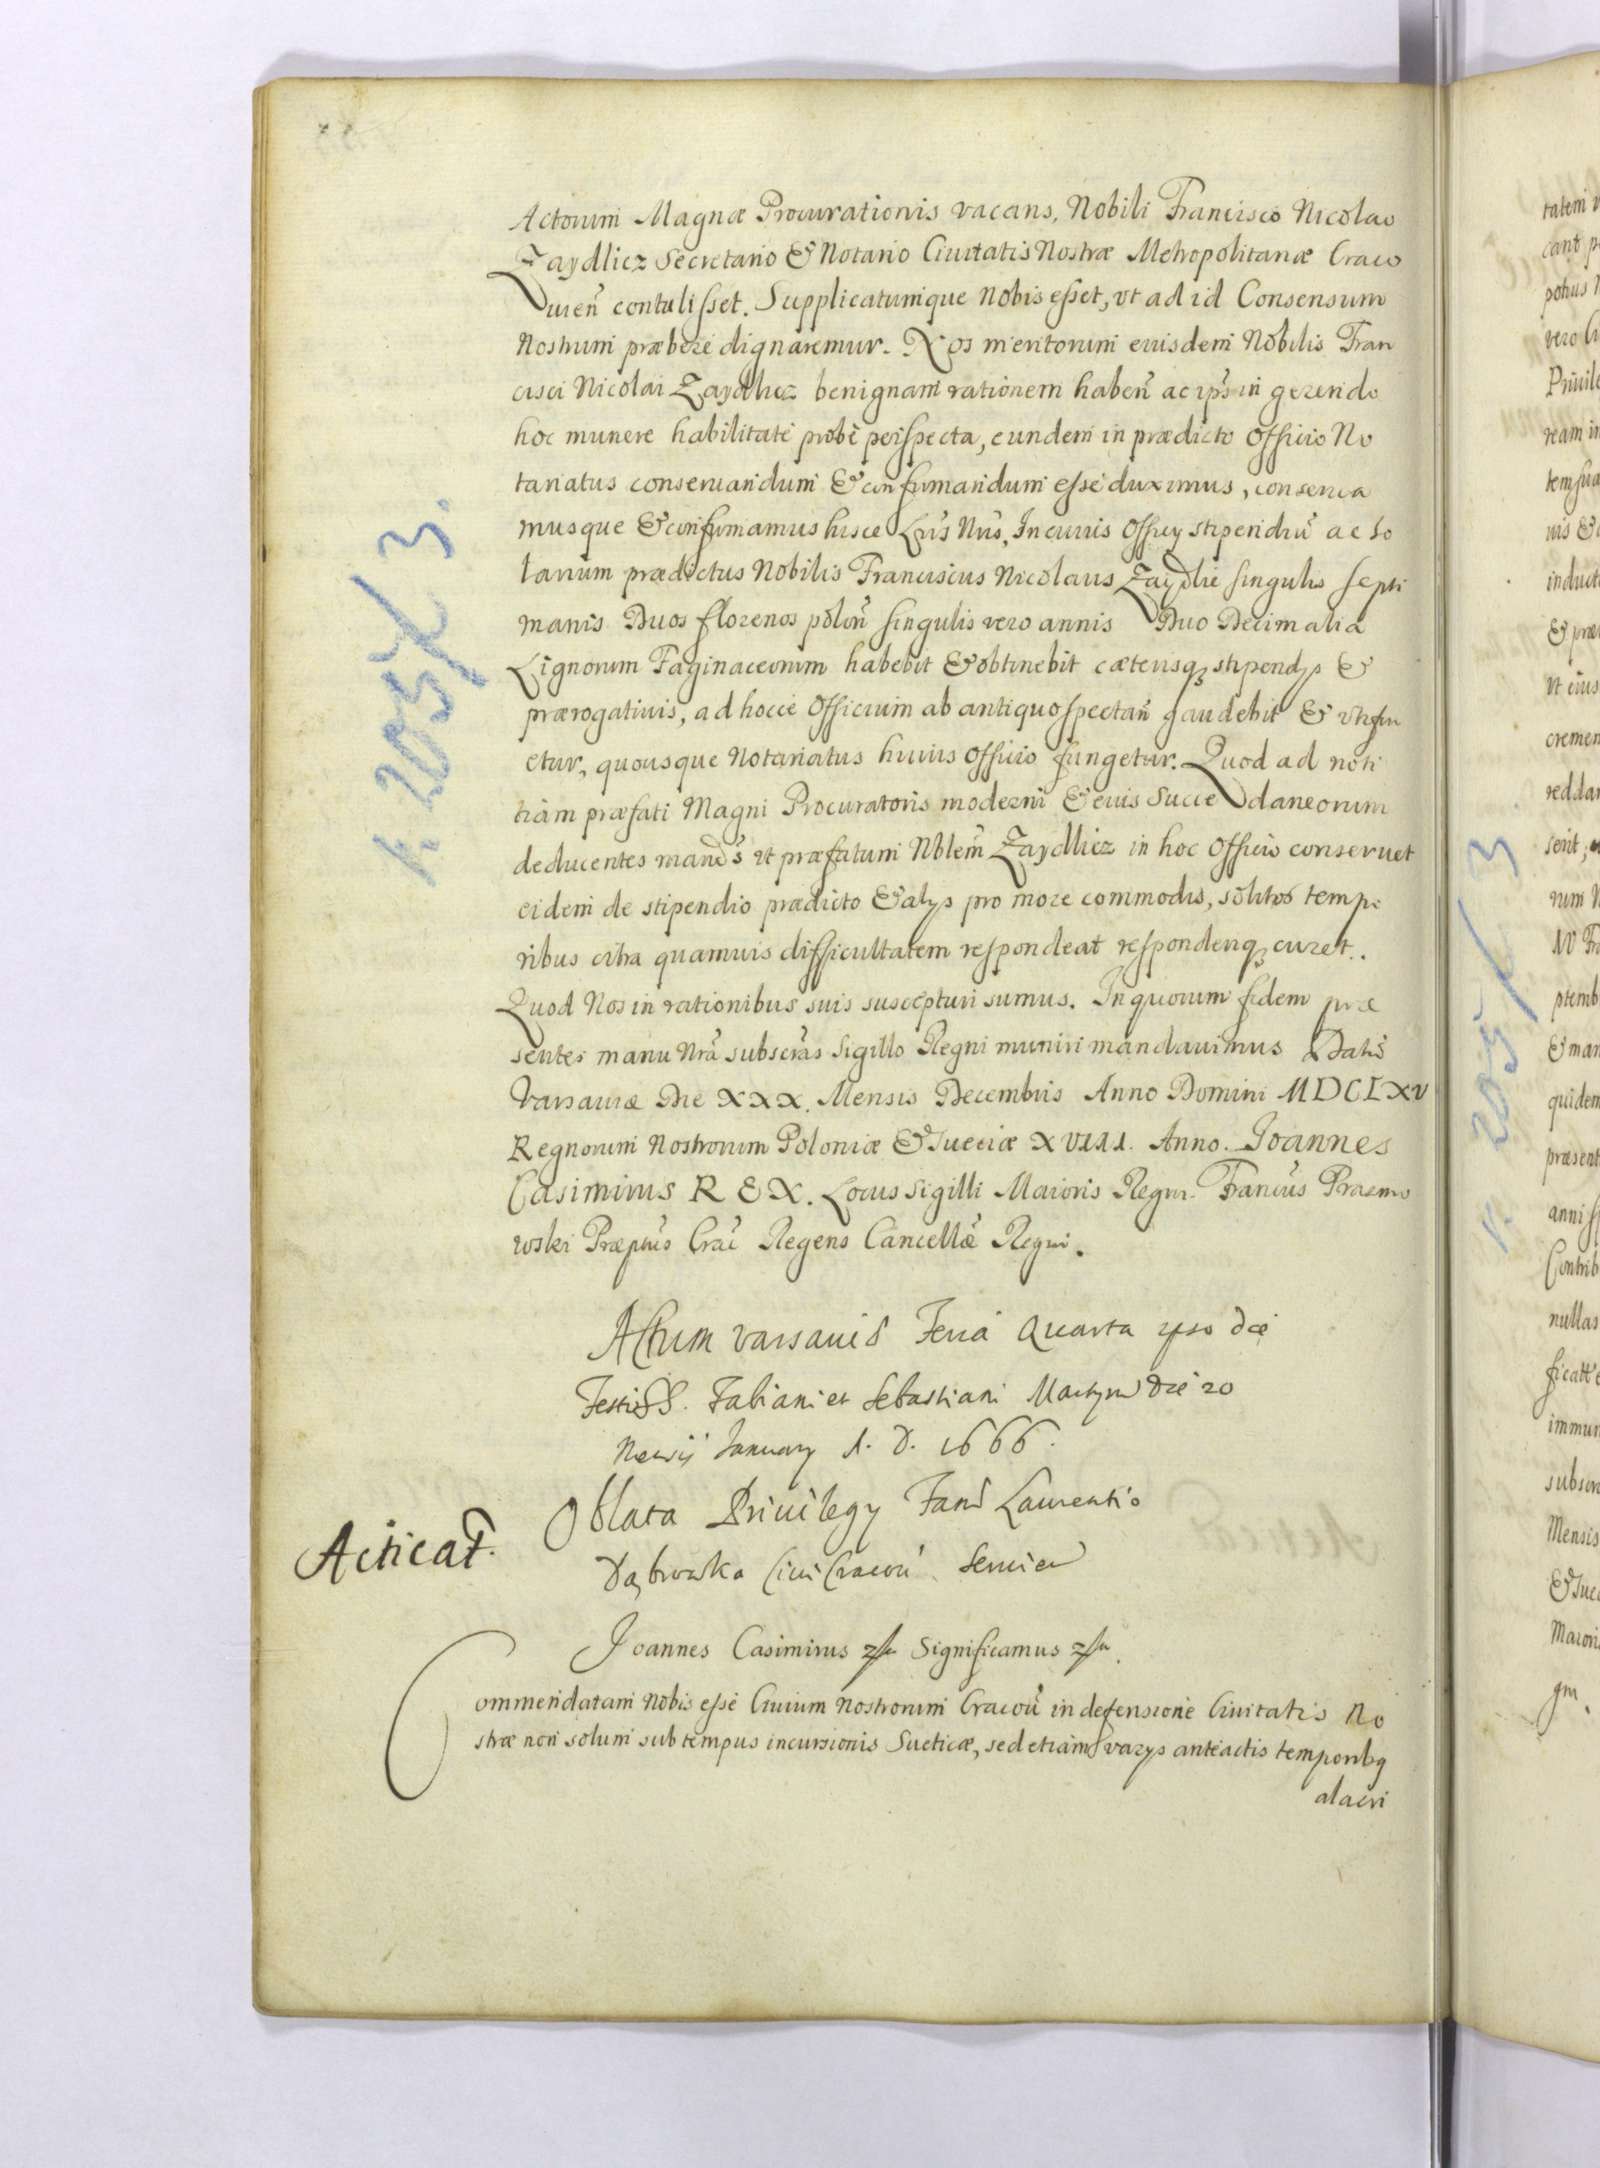 Actorum Magnæ Procurationis vacans, Nobili Francisco Nicolao
Zaydlicz Secretario & Notario Ciuitatis Nostræ Metropolitanæ Craco
uien̄ contulisset. Supplicatumque Nobis esset, vt ad id Consensum
Nostrum præbere dignaremur. Nos meritorum eiusdem Nobilis Fran
cisci Nicolai Zaydlicz benignam rationem haben̄ ac ips̄ in gerendo
hoc munere habilitate probè perspecta, eundem in prædicto Officio No
tariatus conseruandum & confirmandum esse duximus, conserua
musque & confirmamus hisce Lrīs Nrīs, In cuius Officy stipendiū ac so
larium prædictus Nobilis Franciscus Nicolaus Zaydlic singulis septi
manis Duos florenos polon̄ singulis vero annis Duo Decimalia
Lignorum Faginaceorum habebit & obtinebit cæterisq₃ stipendys &
prærogatiuis, ad hocce Officium ab antiquo spectan̄ gaudebit & vtifru
etur, quousque Notariatus huius Officio fungetur. Quod ad noti
tiam præfati Magni Procuratoris moderni & eius Succedaneorum
deducentes mand̄s vt præfatum Nblem̄ Zaydlicz in hoc Officio conseruet
eidem de stipendio prædicto & alys pro more commodis, solitos tempo
ribus citra quamuis difficultatem respondeat responderiq₃ curet.
Quod Nos in rationibus suis suscepturi sumus. In quorum fidem præ
sentes manu Nrā subscrās Sigillo Regni muniri mandauimus Datū
Varsauiæ Die XXX. Mensis Decembris Anno Domini MDCLXV
Regnorum Nostrorum Poloniæ & Sueciæ XVIII. Anno. Joannes
Casimirus REX. Locus Sigilli Maioris Regni. Franciūs Prazmo
wski Præptūs Crac̄ Regens Cancellǣ Regni.
Actum Varsauiæ Feria Quarta ipso die
Festi SS. Fabiani et Sebastiani Martyrū die 20
Mensis January A. D. 1666.
Acticat̄.
Oblata Priuilegy Laurentio
Dąbrowska Ciui Cracou̅ seruien̅
Joannes Casimirus Significamus
Commendatam Nobis esse Ciuium Nostrorum Cracou̅ in defensione Ciuitatis No
stræ non solum sub tempus incursionis Sueticæ, sed etiam varys anteactis temporibq
alacri